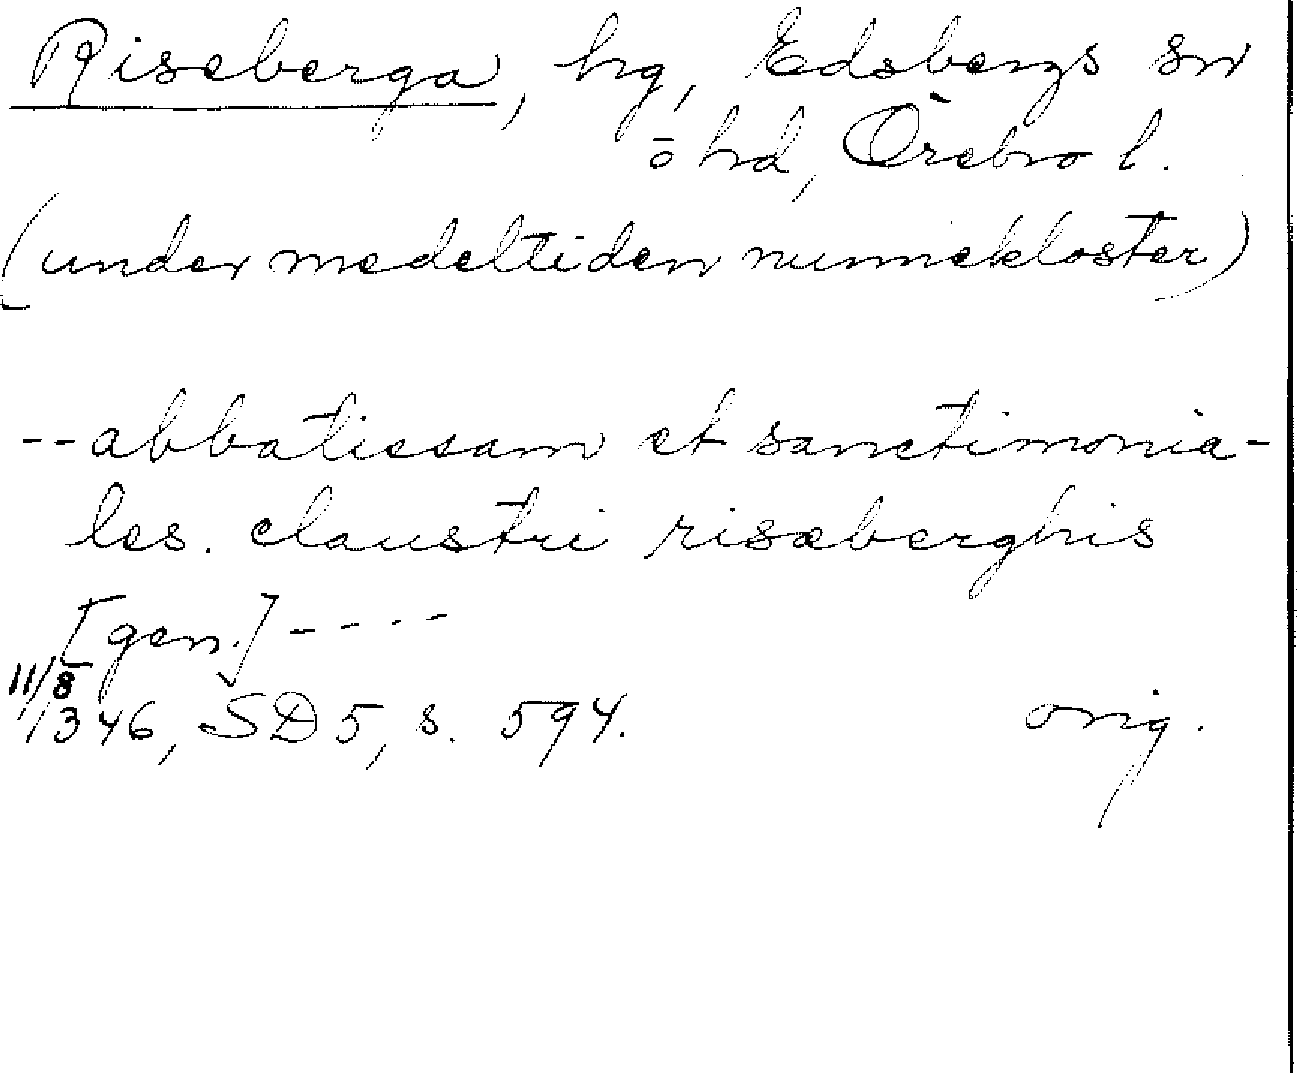 Riseberga, hg, Edsbergs sn
ö hd, Örebro l.
(under medeltiden nunnekloster)
-- abbatissam et sanctimonia-
les. claustri risæberghis
[gen.] ----
11/8
1346, SD 5, s. 594. orig.